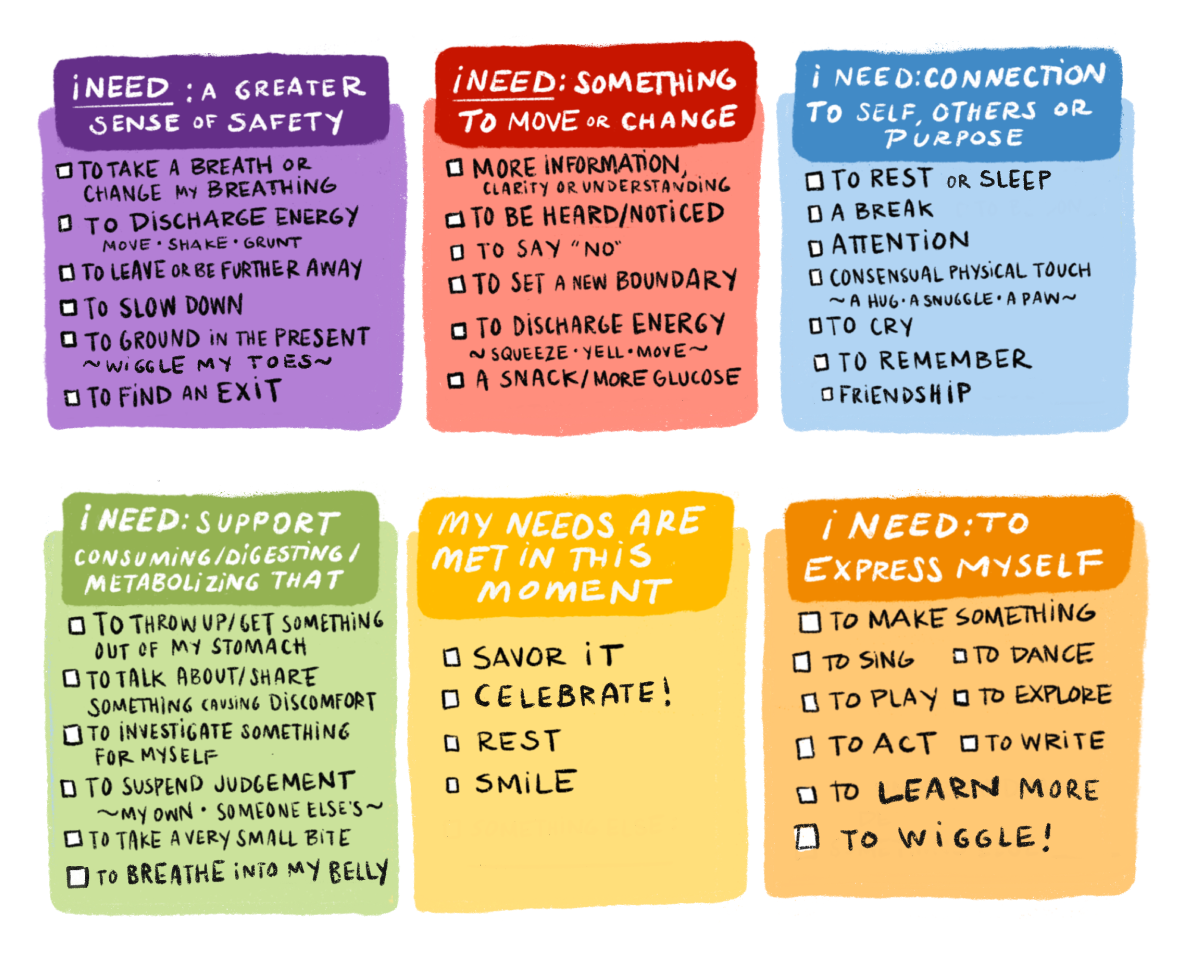 iNEED : A GREATER
SENSE OF SAFETY
TO TAKE A BREATH OR
CHANGE MY BREATHING
TO DISCHARGE ENERGY
MOVE · SHAKE · GRUNT
TO LEAVE OR BE FURTHER AWAY
TO SLOW DOWN
TO GROUND iN THE PRESENT
~WiGGLE MY TOES~
TO FiND AN EXiT
iNEED: SOMETHiNG
TO MOVE OR CHANGE
MORE iNFORMATiON,
CLARiTY OR UNDERSTANDiNG
TO BE HEARD/NOTiCED
TO SAY "NO"
TO SET A NEW BOUNDARY
TO DiSCHARGE ENERGY
~SQUEEZE · YELL · MOVE~
A SNACK/MORE GLUCOSE
i NEED: CONNECTiON
TO SELF, OTHERS OR
PURPOSE
TO REST OR SLEEP
A BREAK
ATTENTiON
CONSENSUAL PHYSICAL TOUCH
~A HUG · A SNUGGLE · A PAW~
TO CRY
TO REMEMBER
FRiENDSHiP
i NEED: SUPPORT
CONSUMiNG/DiGESTiNG/
METABOLiZiNG THAT
TO THROW UP/GET SOMETHiNG
OUT OF MY STOMACH
TO TALK ABOUT/SHARE
SOMETHiNG CAUSiNG DiSCOMFORT
TO iNVESTiGATE SOMETHiNG
FOR MYSELF
TO SUSPEND JUDGEMENT
~MY OWN · SOMEONE ELSE'S~
TO TAKE A VERY SMALL BiTE
TO BREATHE iNTO MY BELLY
MY NEEDS ARE
MET iN THiS
MOMENT
SAVOR iT
CELEBRATE!
REST
SMiLE
i NEED: TO
EXPRESS MYSELF
TO MAKE SOMETHiNG
TO SiNG TO DANCE
TO PLAY TO EXPLORE
TO ACT TO WRiTE
TO LEARN MORE
TO WiGGLE!